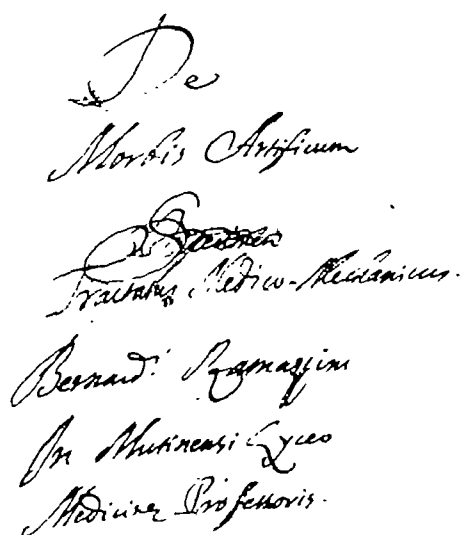 De
Morbis Artificum
Tractatus Medico-Mechanicus.
Bernardi Ramazzini
In Mutinensi Lyceo
Medicinæ Professoris.